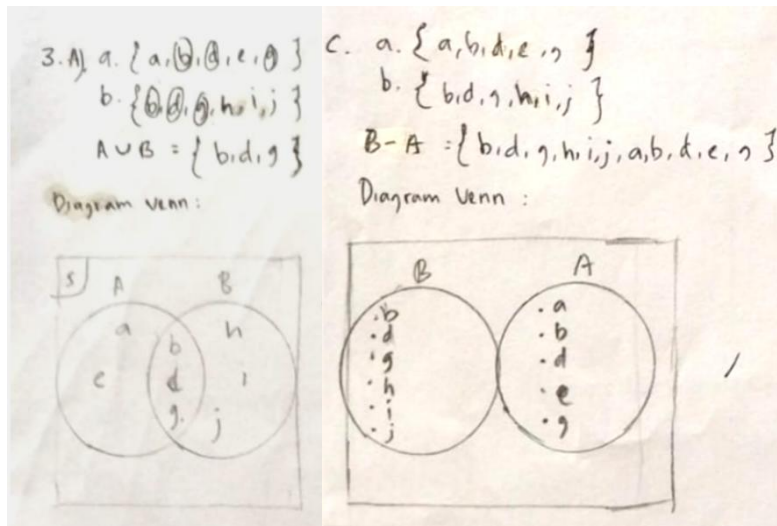 3. A) a. { a, b, d, e, g }
b. { b, d, g, h, i, j }
A ∪ B = { b, d, g }
Diagram Venn :
S
A B
a b h
e d i
g. j
C. a. { a, b, d, e, g }
b. { b, d, g, h, i, j }
B - A = { b, d, g, h, i, j, a, b, d, e, g }
Diagram Venn :
B A
. b . a
. d . b
. g . d
. h . e
. i . g
. j